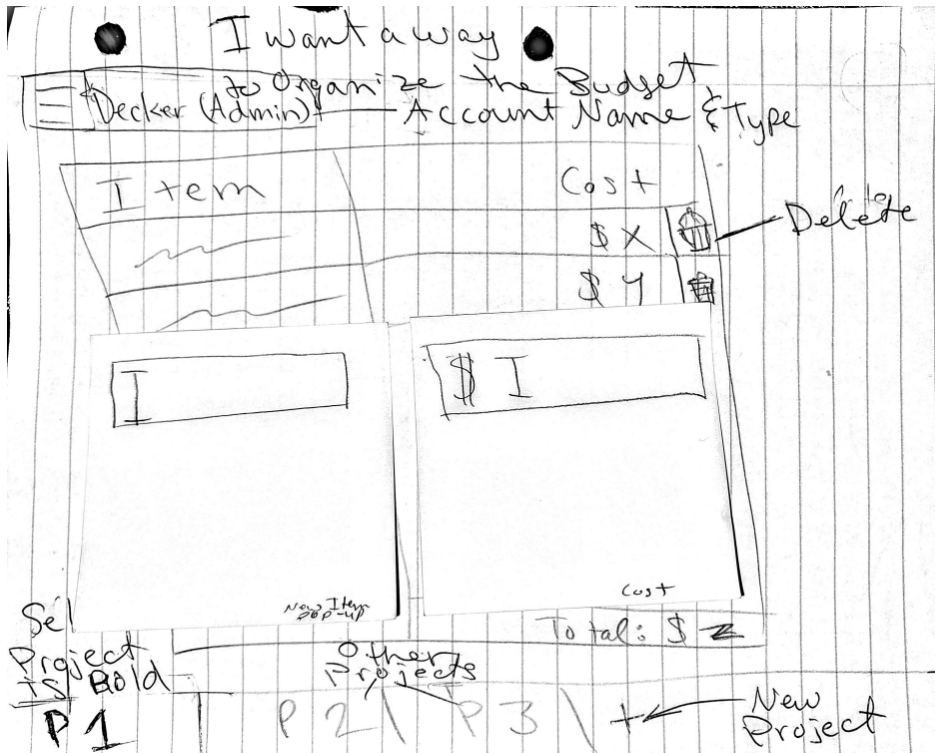 I want a way
to Organize the Budget
Decker (Admin) Account Name & Type
Item Cost
$ X Delete
$ Y
I $ I
New Item
pop-up
Cost
Total: $ Z
Sel
Project
IS Bold
Other
Projects
P1 P2 P3 +
New
Project